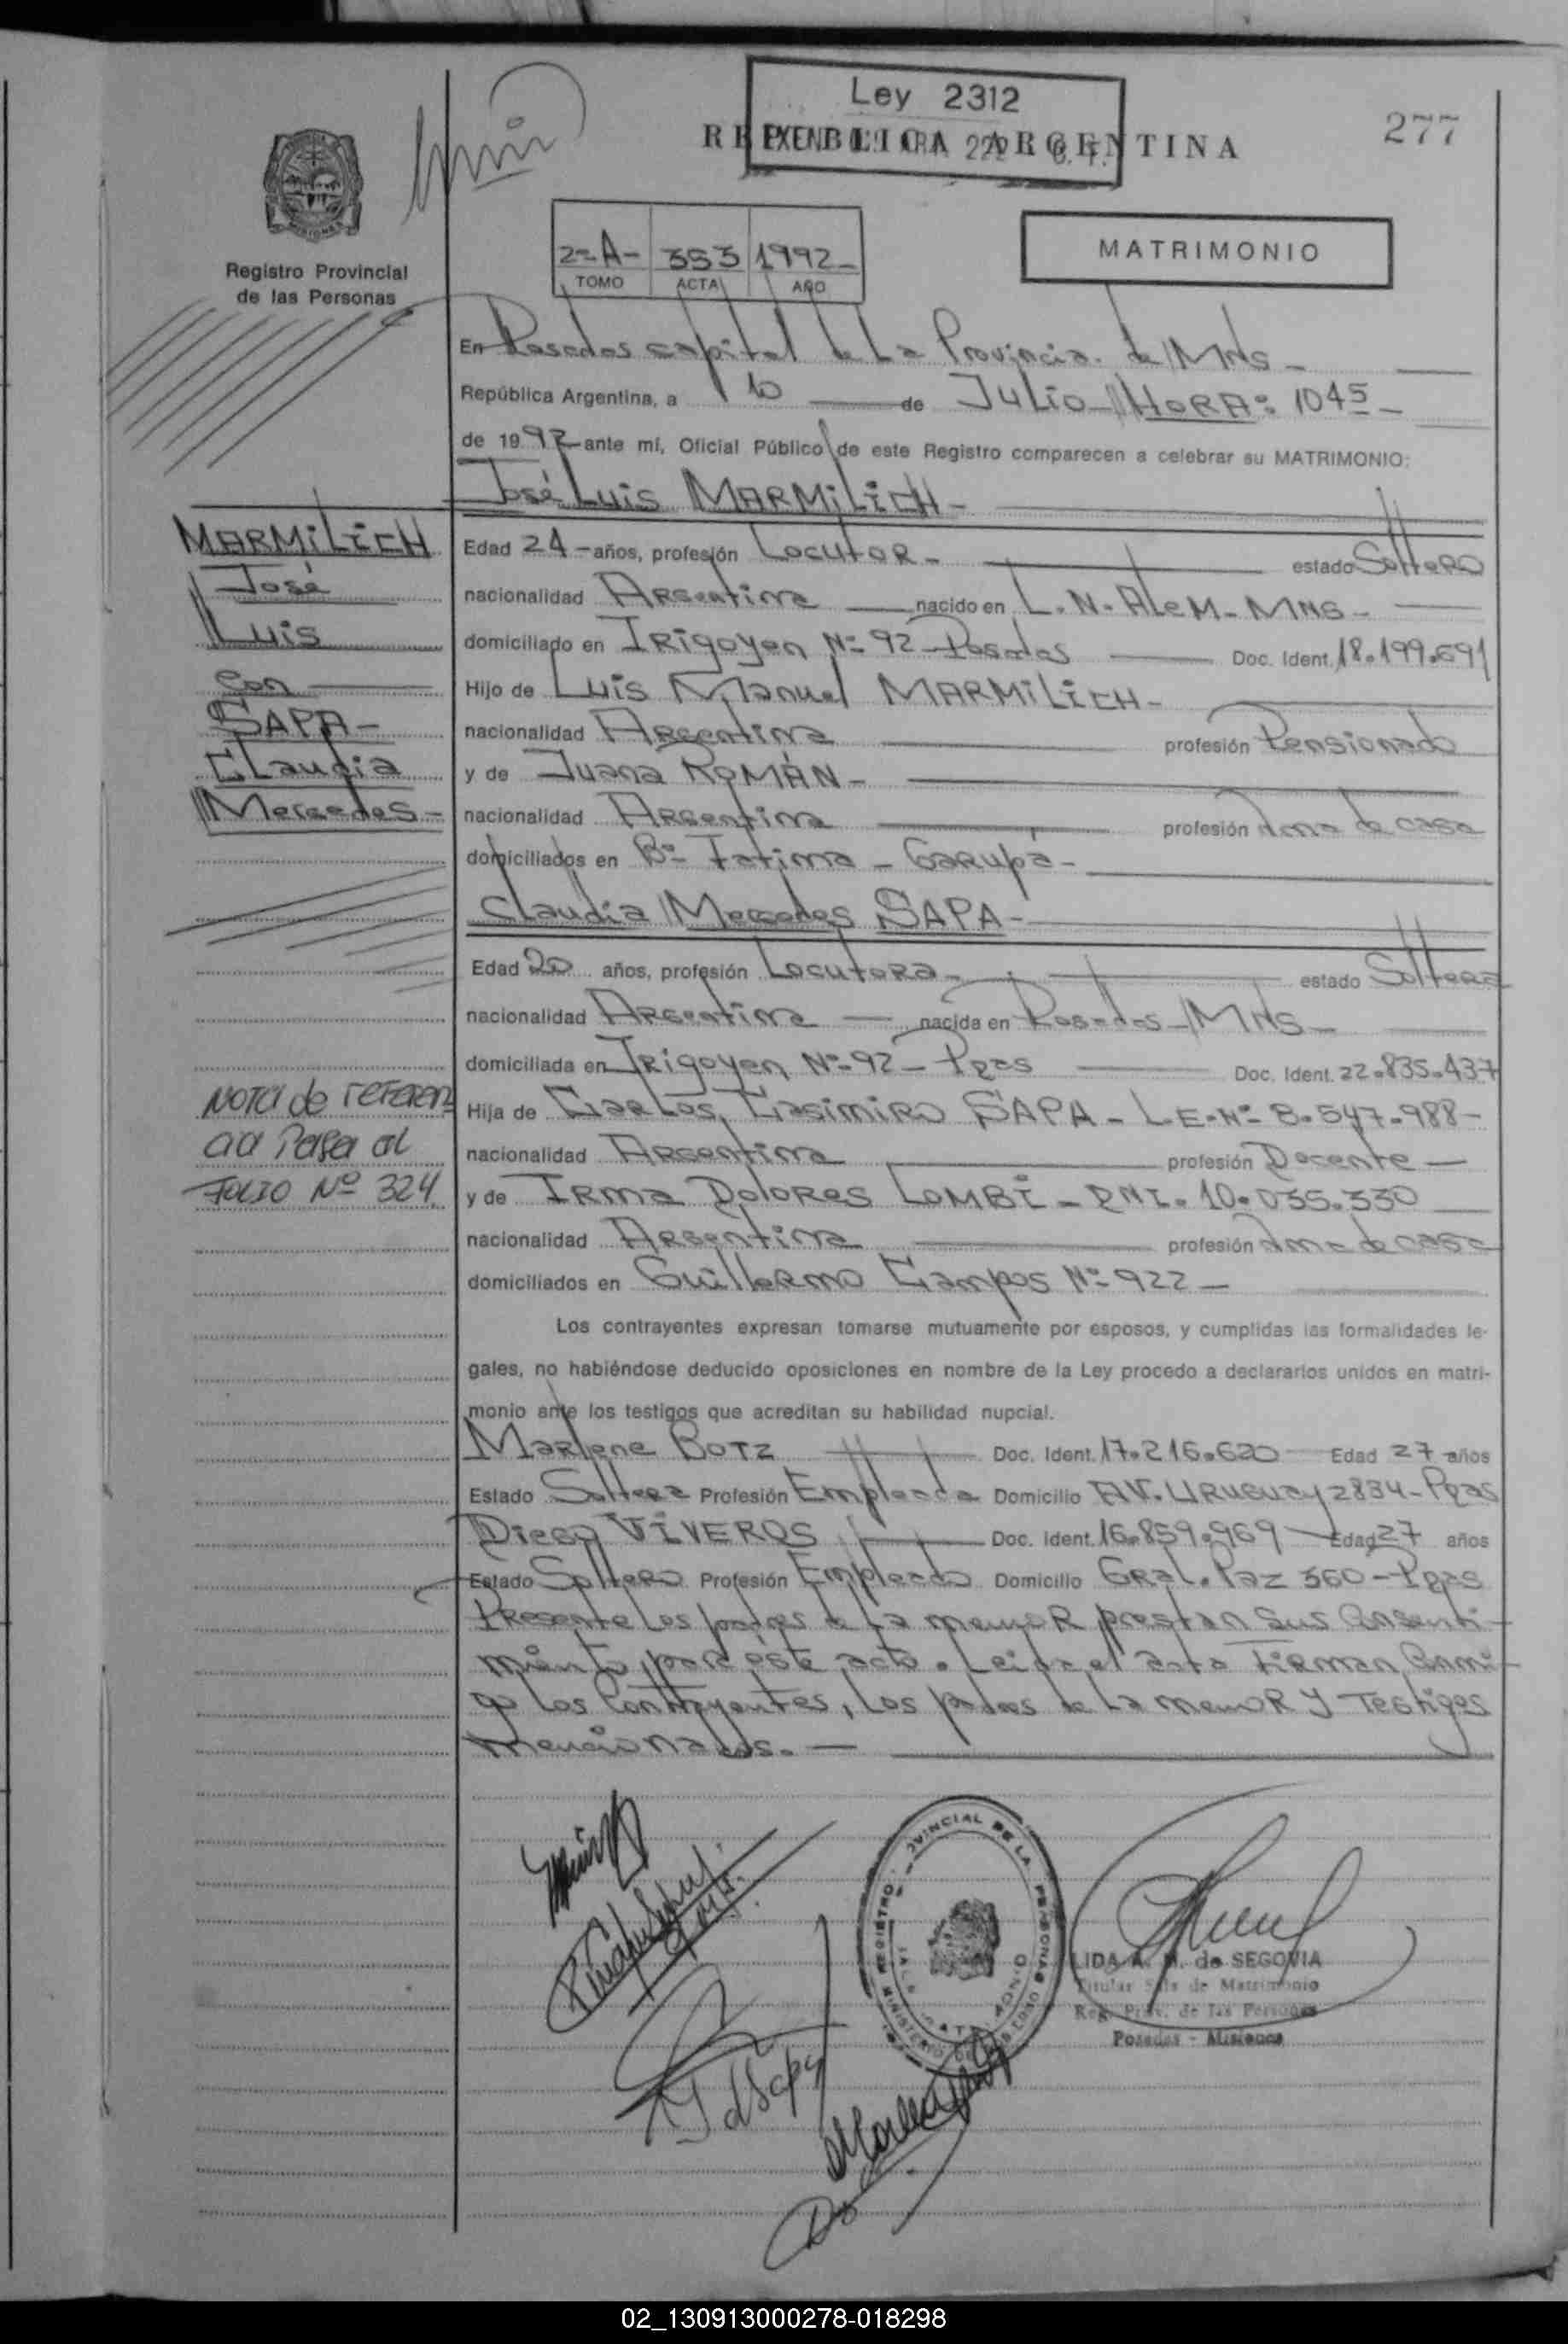 Ley 2312
REPUBLICA ARGENTINA
277
MISIONES
Registro Provincial
de las Personas
2-A- 353 1992-
TOMO ACTA AÑO
MATRIMONIO
En Posadas capital de La Provincia de Mns-
República Argentina, a 10 de Julio - HORA: 1045-
de 1992 ante mí, Oficial Público de este Registro comparecen a celebrar su MATRIMONIO:
José Luis MARMILICH-
MARMILICH
José
Luis
con
SAPA-
Claudia
Mercedes-
Edad 24- años, profesión Locutor- estado Soltero
nacionalidad Argentina nacido en L. N. ALEM- MNS-
domiciliado en Irigoyen Nº 92 Posadas Doc. Ident. 18.199.691
Hijo de Luis Manuel MARMILICH-
nacionalidad Argentina profesión Pensionado
y de Juana ROMÁN-
nacionalidad Argentina profesión Ama de casa
domiciliados en Bº Fatima - Garupá-
Claudia Mercedes SAPA-
Edad 20 años, profesión Locutora- estado Soltera
nacionalidad Argentina nacida en Posadas- MNS-
domiciliada en Irigoyen Nº 92 - Pdas Doc. Ident. 22.835.437
Hija de Carlos Casimiro SAPA - L.E. Nº 8.547.988-
nacionalidad Argentina profesión Docente
y de Irma Dolores LOMBI - DNI. 10.035.330
nacionalidad Argentina profesión Ama de casa
domiciliados en Guillermo Campos Nº 922-
NOTA de referen
cia Pasa al
Folio Nº 324
Los contrayentes expresan tomarse mutuamente por esposos, y cumplidas las formalidades le-
gales, no habiéndose deducido oposiciones en nombre de la Ley procedo a declararlos unidos en matri-
monio ante los testigos que acreditan su habilidad nupcial.
Marlene BOTZ Doc. Ident. 17.216.620 Edad 27 años
Estado Soltera Profesión Empleada Domicilio AV. Uruguay 2834- Pdas
Diego VIVEROS Doc. Ident. 16.859.969 Edad 27 años
Estado Soltero Profesión Empleado Domicilio Gral. Paz 360 - Pdas
Presente los padres de la menor prestan sus consenti-
miento por éste acto. Leida el acta Firman conmi-
go los Contrayentes, los padres de la menor y Testigos
mencionados.-
LIDA A. de SEGOVIA
Titular de Matrimonio
Reg. Prov. de las Personas
Posadas - Misiones
02_130913000278-018298